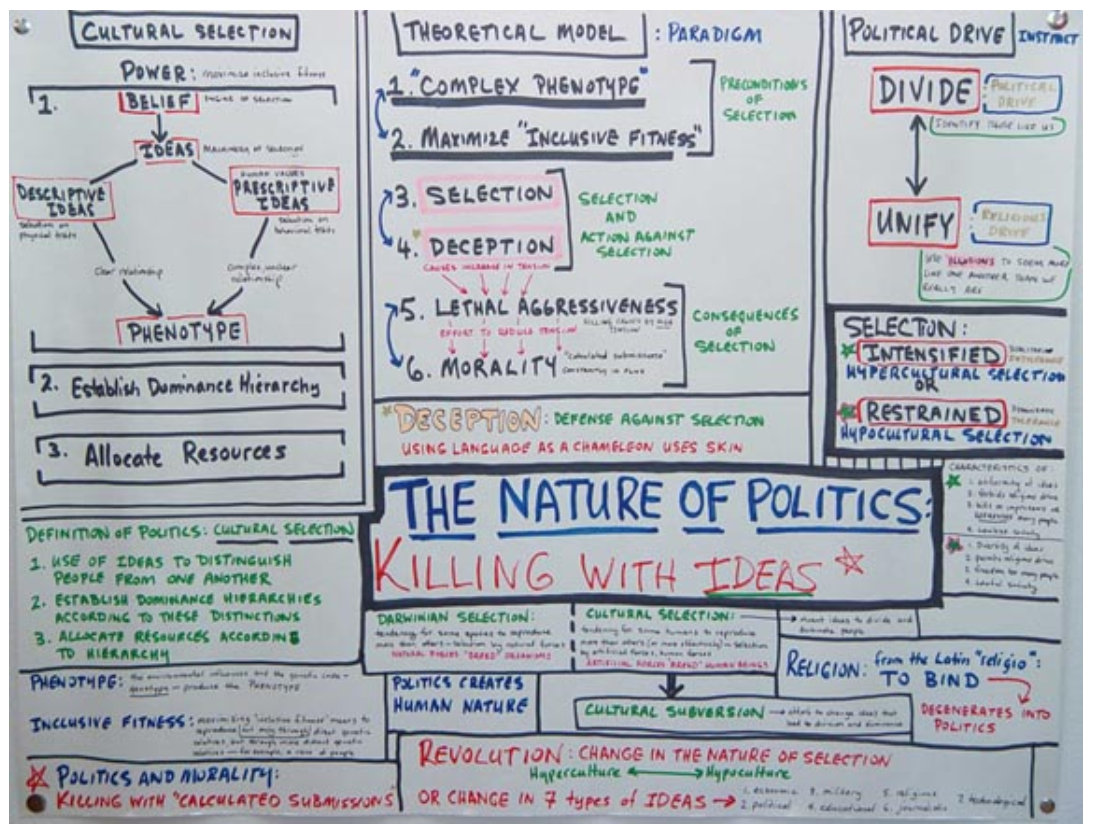 CULTURAL SELECTION
POWER: maximize inclusive fitness
1.
BELIEF
ENGINE OF SELECTION
IDEAS
MACHINERY OF SELECTION
DESCRIPTIVE
IDEAS
selection on
physical traits
HUMAN VALUES
PRESCRIPTIVE
IDEAS
selection on
behavioral traits
Clear relationship
Complex, unclear
relationship
PHENOTYPE
2. Establish Dominance Hierarchy
3. Allocate Resources
THEORETICAL MODEL : PARADIGM
1. "COMPLEX PHENOTYPE"
2. MAXIMIZE "INCLUSIVE FITNESS"
PRECONDITIONS
OF
SELECTION
3. SELECTION
4. DECEPTION
CAUSES INCREASE IN TENSION
SELECTION
AND
ACTION AGAINST
SELECTION
5. LETHAL AGGRESSIVENESS
EFFORT TO REDUCE TENSION
KILLING CAUSED BY HIGH
TENSION
6. MORALITY "calculated submissions"
constantly in flux
CONSEQUENCES
OF
SELECTION
DECEPTION: DEFENSE AGAINST SELECTION
USING LANGUAGE AS A CHAMELEON USES SKIN
POLITICAL DRIVE INSTINCT
DIVIDE : POLITICAL
DRIVE
IDENTIFY THOSE LIKE US
UNIFY : RELIGIOUS
DRIVE
USE ILLUSIONS TO SEEM MORE
LIKE ONE ANOTHER THAN WE
REALLY ARE
SELECTION:
INTENSIFIED
INTOLERANCE
HYPERCULTURAL SELECTION
OR
RESTRAINED
TOLERANCE
HYPOCULTURAL SELECTION
CHARACTERISTICS OF:
1. uniformity of ideas
2. forbids religious drive
3. kills or imprisons or
many people
4. Lawless society
1. Diversity of ideas
2. permits religious drive
3. freedom for many people
4. Lawful society
THE NATURE OF POLITICS:
KILLING WITH IDEAS
DEFINITION OF POLITICS: CULTURAL SELECTION
1. USE OF IDEAS TO DISTINGUISH
PEOPLE FROM ONE ANOTHER
2. ESTABLISH DOMINANCE HIERARCHIES
ACCORDING TO THESE DISTINCTIONS
3. ALLOCATE RESOURCES ACCORDING
TO HIERARCHY
PHENOTYPE: the environmental influences and the genetic code -
genotype - produce the PHENOTYPE
INCLUSIVE FITNESS: maximizing "inclusive fitness" means to
reproduce not only through direct genetic
relatives, but through more distant genetic
relatives - for example, a race of people
POLITICS AND MORALITY:
KILLING WITH "CALCULATED SUBMISSIONS"
DARWINIAN SELECTION:
tendency for some species to reproduce
more than others - selection by natural forces
NATURAL FORCES "BREED" ORGANISMS
CULTURAL SELECTION:
tendency for some humans to reproduce
more than others (or more effectively) - selection
by artificial forces, human forces
ARTIFICIAL FORCES "BREED" HUMAN BEINGS
invent ideas to divide and
dominate people
POLITICS CREATES
HUMAN NATURE
CULTURAL SUBVERSION
efforts to change ideas that
lead to division and dominance
RELIGION: from the Latin "religio":
TO BIND
DEGENERATES INTO
POLITICS
REVOLUTION: CHANGE IN THE NATURE OF SELECTION
Hyperculture Hypoculture
OR CHANGE IN 7 types of IDEAS
1. economic 3. military 5. religious 7. technological
2. political 4. educational 6. journalistic